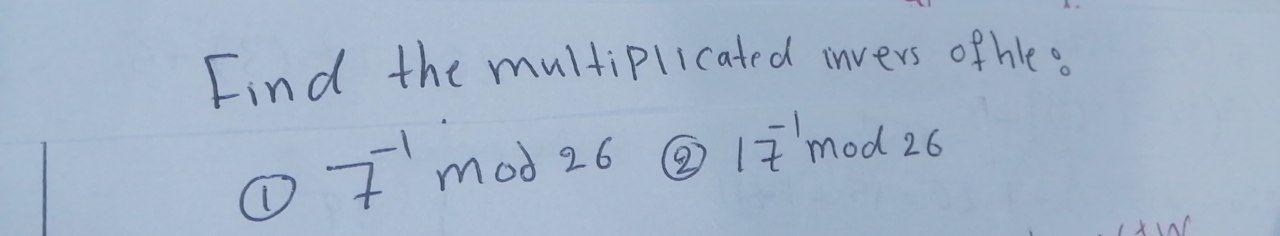 Find the multiplicated invers of hle:
① 7⁻¹ mod 26 ② 17⁻¹ mod 26